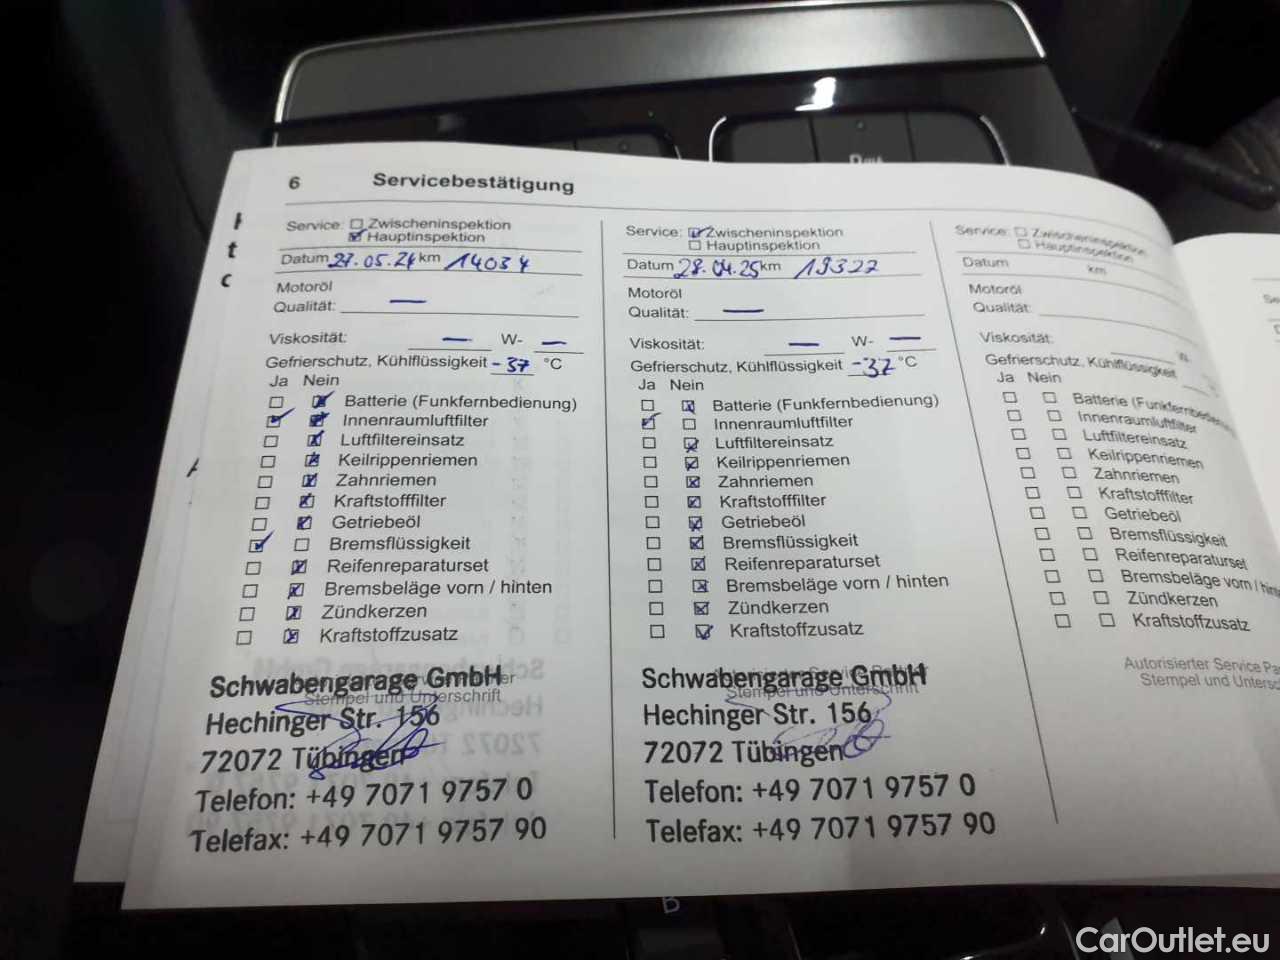 6 Servicebestätigung
Service: Zwischeninspektion
Hauptinspektion
Datum 27.05.24 km 14034
Motoröl
Qualität: —
Viskosität: — W- —
Gefrierschutz, Kühlflüssigkeit -37 °C
Ja Nein
Batterie (Funkfernbedienung)
Innenraumluftfilter
Luftfiltereinsatz
Keilrippenriemen
Zahnriemen
Kraftstofffilter
Getriebeöl
Bremsflüssigkeit
Reifenreparaturset
Bremsbeläge vorn / hinten
Zündkerzen
Kraftstoffzusatz
Stempel und Unterschrift
Schwabengarage GmbH
Hechinger Str. 156
72072 Tübingen
Telefon: +49 7071 9757 0
Telefax: +49 7071 9757 90
Service: Zwischeninspektion
Hauptinspektion
Datum 28.04.25 km 19322
Motoröl
Qualität: —
Viskosität: — W- —
Gefrierschutz, Kühlflüssigkeit -37 °C
Ja Nein
Batterie (Funkfernbedienung)
Innenraumluftfilter
Luftfiltereinsatz
Keilrippenriemen
Zahnriemen
Kraftstofffilter
Getriebeöl
Bremsflüssigkeit
Reifenreparaturset
Bremsbeläge vorn / hinten
Zündkerzen
Kraftstoffzusatz
Autorisierter Service Partner
Stempel und Unterschrift
Schwabengarage GmbH
Hechinger Str. 156
72072 Tübingen
Telefon: +49 7071 9757 0
Telefax: +49 7071 9757 90
Service: Zwischeninspektion
Hauptinspektion
Datum km
Motoröl
Qualität:
Viskosität: W-
Gefrierschutz, Kühlflüssigkeit
Ja Nein
Batterie (Funkfernbedienung
Innenraumluftfilter
Luftfiltereinsatz
Keilrippenriemen
Zahnriemen
Kraftstofffilter
Getriebeöl
Bremsflüssigkeit
Reifenreparaturset
Bremsbeläge vorn / hinte
Zündkerzen
Kraftstoffzusatz
Autorisierter Service Pa
Stempel und Untersc
CarOutlet.eu